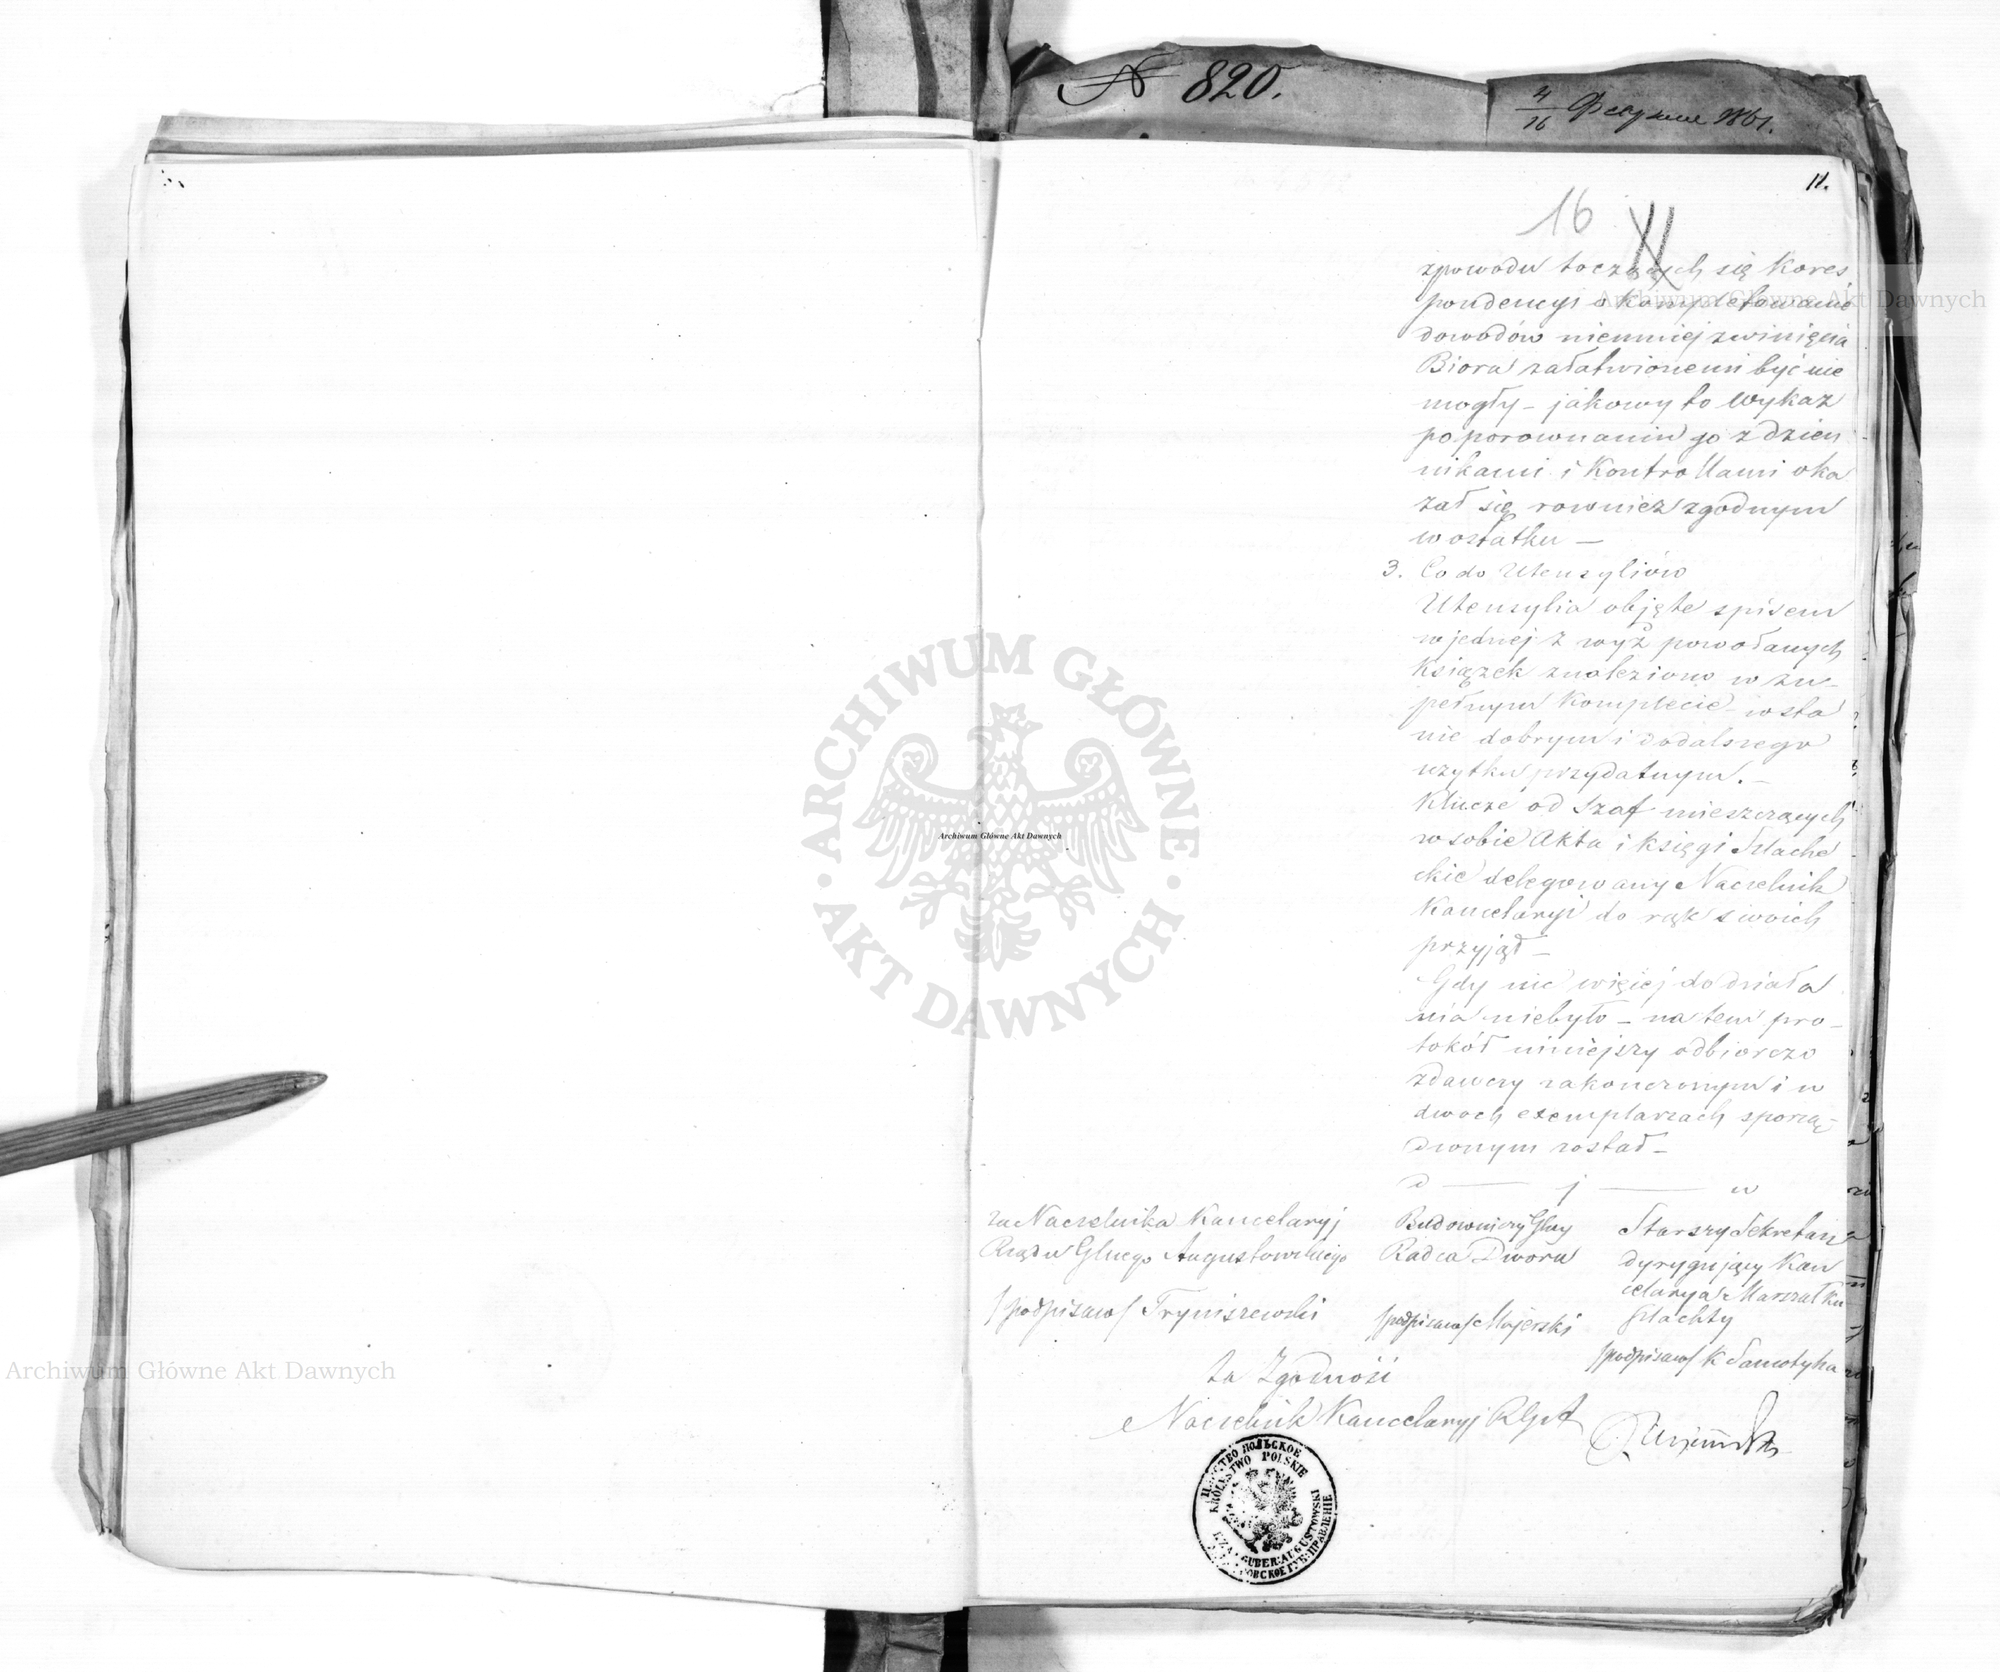 № 820.
4/16 Февраля 1861.
11.
16
zpowodu toczących się Kores
pondencyi o kompletowanie
dowodów niemniej zwinięcia
Biora załatwionemi być nie
mogły – jakowy to Wykaz
po porownaniu go z dzien
nikami i Kontrollami oka
zał się rownież zgodnym
w ostatku —
3. Co do Utensyliów
Utensylia objęte spisem
w jednej z wyż powołanych
Książek znaleziono w zu-
pełnym Komplecie w sta
nie dobrym i do dalszego
użytku przydatnym. –
Klucze od Szaf mieszczących
w sobie Akta i księgi Szlache
ckie delegowany Naczelnik
Kancelaryi do rąk swoich
przyjął –
Gdy nic więcej do działa
nia niebyło – na tem pro-
tokół niniejszy odbiorczo
zdawczy zakonczonym i w
dwoch exemplarzach sporzą-
dzonym został –
d — j — w
za Naczelnika Kancelaryj
Rządu Gluego Augustowskiego
/podpisano/ Tryniszewski
Budowniczy Glny
Radca Dworu
/podpisano/ Majerski
Starszy Sekretarz
dyrygujący Kan
celarya Marszałka
Szlachty
/podpisano/ K Samotyha
Za Zgodność
Naczelnik Kancelaryj RGA
ЦАРСТВО ПОЛЬСКОЕ
KRÓLESTWO POLSKIE
RZĄD GUBER: AUGUSTOWSKI
АВГУСТОВСКОЕ ГУБ: ПРАВЛЕНІЕ
ARCHIWUM GŁÓWNE
AKT DAWNYCH
Archiwum Główne Akt Dawnych
Archiwum Główne Akt Dawnych
Archiwum Główne Akt Dawnych